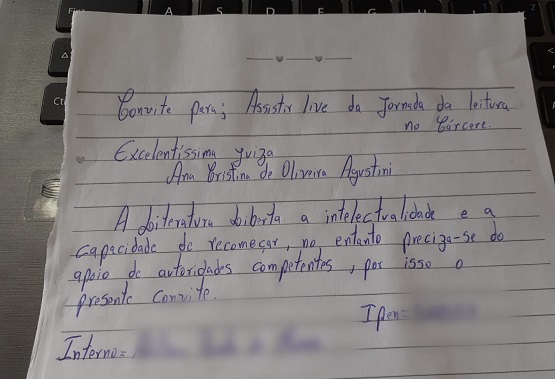 Convite para; Assistir live da Jornada da leitura
no Cárcere.
Excelentíssima yuiza
Ana Cristina de Oliveira Agustini
A Literatura liberta a intelectualidade e a
capacidade de recomeçar, no, entanto preciza-se do
apoio de autoridades competentes, por isso o
presente convite.
Ipen=
Interno=